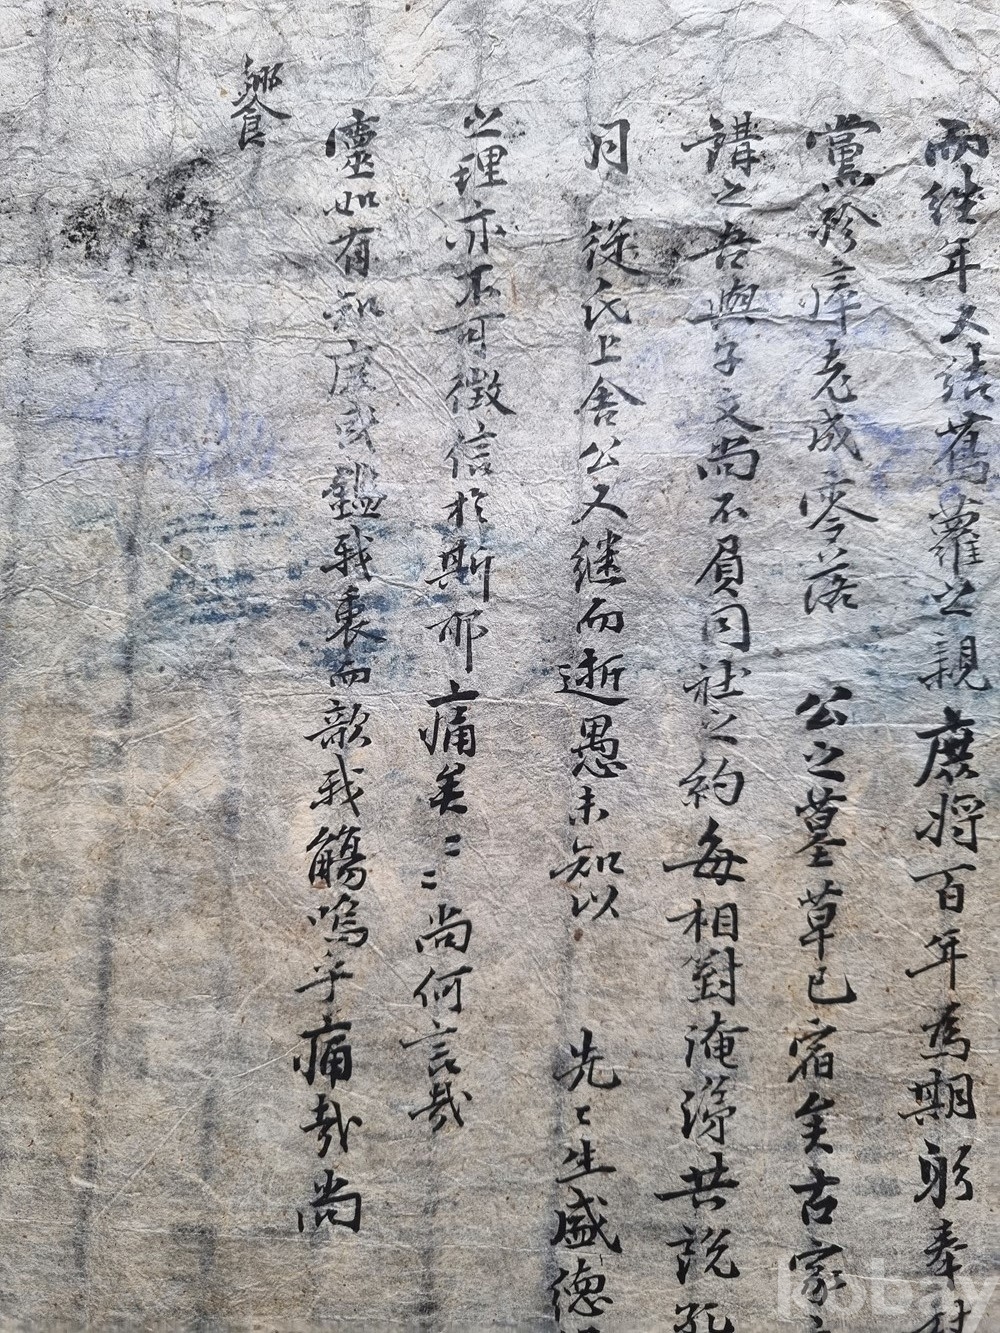 而往年又結蔦蘿之親 庶將百年爲期躬奉
黨殄瘁老成零落 公之墓草已宿矣古家
講之吾與子文尚不負同社之約每相對淹滯共說
月 從氏上舍公又継而逝愚未知以 先〻生盛德
之理亦不可徵信於斯耶痛矣〻〻尚何言哉
靈如有知庶或鑑我衷而歆我觴嗚乎痛哉尚
饗
kobay